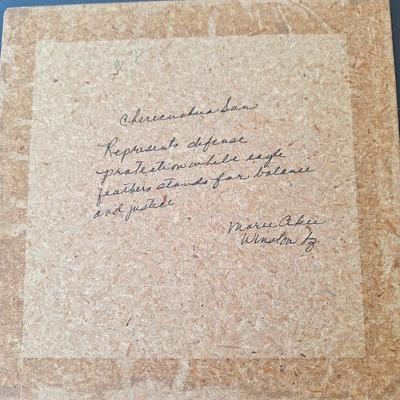 Represents defense
protection while eagle
feathers stands for balance
and justice
Marie
Winslow